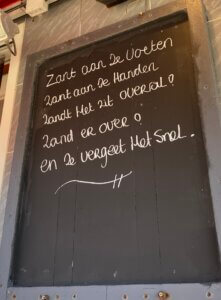 Zant aan De Voeten
Zant aan De Handen
Zandt Het zit overal?
Zand er over?
en Je vergeet Het Snel.